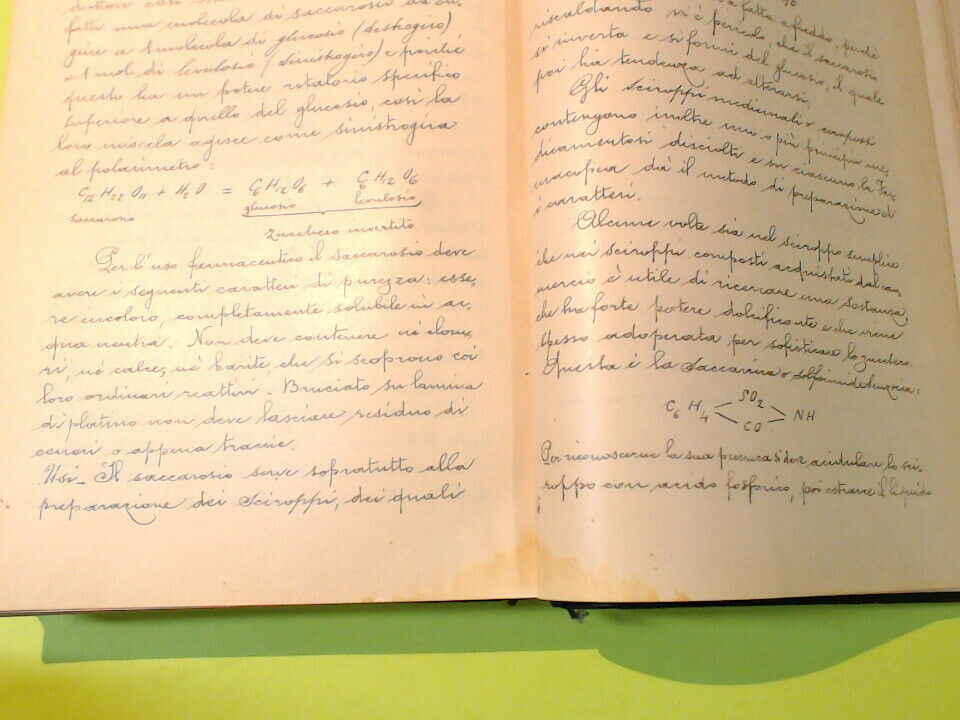 fatti una molecola di saccarosio dà ori-
gine a 1 molecola di glucosio (destrogiro)
e 1 mol. di levulosio (sinistrogiro) e poichè
questo ha un potere rotatorio specifico
superiore a quello del glucosio, così la
loro miscela agisce come sinistrogira
al polarimetro:
C12 H22 O11 + H2O = C6 H12 O6 + C6 H12 O6
saccarosio glucosio levulosio
zucchero invertito
Per l'uso farmaceutico il saccarosio deve
avere i seguenti caratteri di purezza: esse-
re incoloro, completamente solubile in ac-
qua neutra. Non deve contenere nè cloru-
ri, nè calce, nè barite che si scoprono coi
loro ordinari reattivi. Bruciato su lamina
di platino non deve lasciare residuo di
ceneri o appena traccie.
Usi - Il saccarosio serve sopratutto alla
preparazione dei Sciroppi, dei quali
fatta a freddo, perchè
riscaldando vi è pericolo che il saccarosio
si inverta e si formi del glucosio, il quale
poi ha tendenza ad alterarsi.
Gli sciroppi medicinali o composti
contengono inoltre uno o più principii me-
dicamentosi disciolti e su ciascuno la Far-
macopea dà il metodo di preparazione ed
i caratteri.
Alcune volte sia nel sciroppo semplice
che nei sciroppi composti acquistati dal com-
mercio è utile di ricercare una sostanza
che ha forte potere dolcificante e che viene
spesso adoperata per sofisticare lo zucchero.
Questa è la Saccarina o solfoimide benzoica:
C6 H4 < SO2 CO > NH
Per riconoscerne la sua presenza si deve acidulare lo sci-
roppo con acido fosforico, poi estrarre il liquido